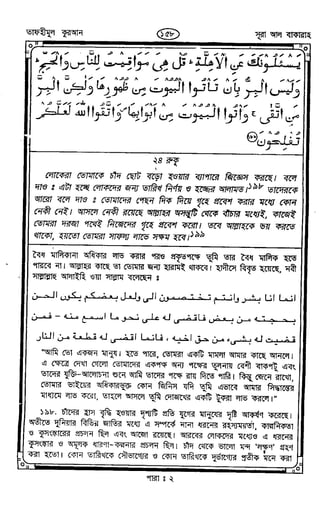 তাফহীমুল কুরআন
১৫৮
সূরা আল বাকারাহ
يَسْـَٔلُونَكَ عَنِ الْأَهِلَّةِ ۖ قُلْ هِيَ مَوَاقِيتُ لِلنَّاسِ وَالْحَجِّ ۗ
وَلَيْسَ الْبِرُّ بِأَنْ تَأْتُوا الْبُيُوتَ مِنْ ظُهُورِهَا وَلٰكِنَّ الْبِرَّ
مَنِ اتَّقٰى ۚ وَأْتُوا الْبُيُوتَ مِنْ أَبْوَابِهَا ۖ وَاتَّقُوا اللّٰهَ لَعَلَّكُمْ
تُفْلِحُونَ
২৪ রুকূ
লোকেরা তোমাকে চাঁদ ছোট বড়ো হওয়ার ব্যাপারে জিজ্ঞেস করছে। বলে
দাও : এটা হচ্ছে লোকদের জন্য তারিখ নির্ণয় ও হজ্জের আলামত।১৯৮ তাদেরকে
আরো বলে দাও : তোমাদের পেছন দিক দিয়ে গৃহে প্রবেশ করার মধ্যে কোন
নেকী নেই। আসলে নেকী রয়েছে আল্লাহর অসন্তুষ্টি থেকে বাঁচার মধ্যেই, কাজেই
তোমরা দরজা পথেই নিজেদের গৃহে প্রবেশ করো। তবে আল্লাহকে ভয় করতে
থাকো, হয়তো তোমরা সাফল্য লাভে সক্ষম হবে।১৯৯
বৈধ মালিকানা অধিকার লাভ করার পরও প্রকৃতপক্ষে তুমি তার বৈধ মালিক হতে
পারবে না। আল্লাহর কাছে তা তোমার জন্য হারামই থাকবে। হাদীসে বিবৃত হয়েছে, নবী
সাল্লাল্লাহু আলাইহি ওয়া সাল্লাম বলেছেন :
انما انا بشر وانتم تختصمون الى ولعل بعضكم يكون الحن
بحجته من بعض فاقضى له على نحو ما اسمع منه - فمن
قضيت له بشىء من حق اخيه ، فانما اقضى له قطعة من النار
"আমি তো একজন মানুষ। হতে পারে, তোমরা একটি মামলা আমার কাছে আনলে।
এ ক্ষেত্রে দেখা গেলো তোমাদের একপক্ষ অন্য পক্ষের তুলনায় বেশী বাকপটু এবং
তাদের যুক্তি-আলোচনা শুনে আমি তাদের পক্ষে রায় দিতে পারি। কিন্তু জেনে রাখো,
তোমার ভাইয়ের অধিকারভুক্ত কোন জিনিস যদি তুমি এভাবে আমার সিদ্ধান্তের
মাধ্যমে লাভ করো, তাহলে আসলে তুমি দোজখের একটি টুকরা লাভ করলে।"
১৯৮. চাঁদের হ্রাস বৃদ্ধি হওয়ার দৃশ্যটি প্রতি যুগের মানুষের দৃষ্টি আকর্ষণ করেছে।
অতীতে দুনিয়ার বিভিন্ন জাতির মধ্যে এ সম্পর্কে নানা ধরনের রহস্যময়তা, কাল্পনিকতা
ও কুসংস্কারের প্রচলন ছিল এবং আজো রয়েছে। আরবের লোকদের মধ্যেও এ ধরনের
কুসংস্কার ও অমূলক ধারণা-কল্পনার প্রচলন ছিল। চাঁদ থেকে ভালো মন্দ 'লক্ষণ' গ্রহণ
করা হতো। কোন তারিখকে সৌভাগ্যের ও কোন তারিখকে দুর্ভাগ্যের প্রতীক মনে করা
পারা : ২